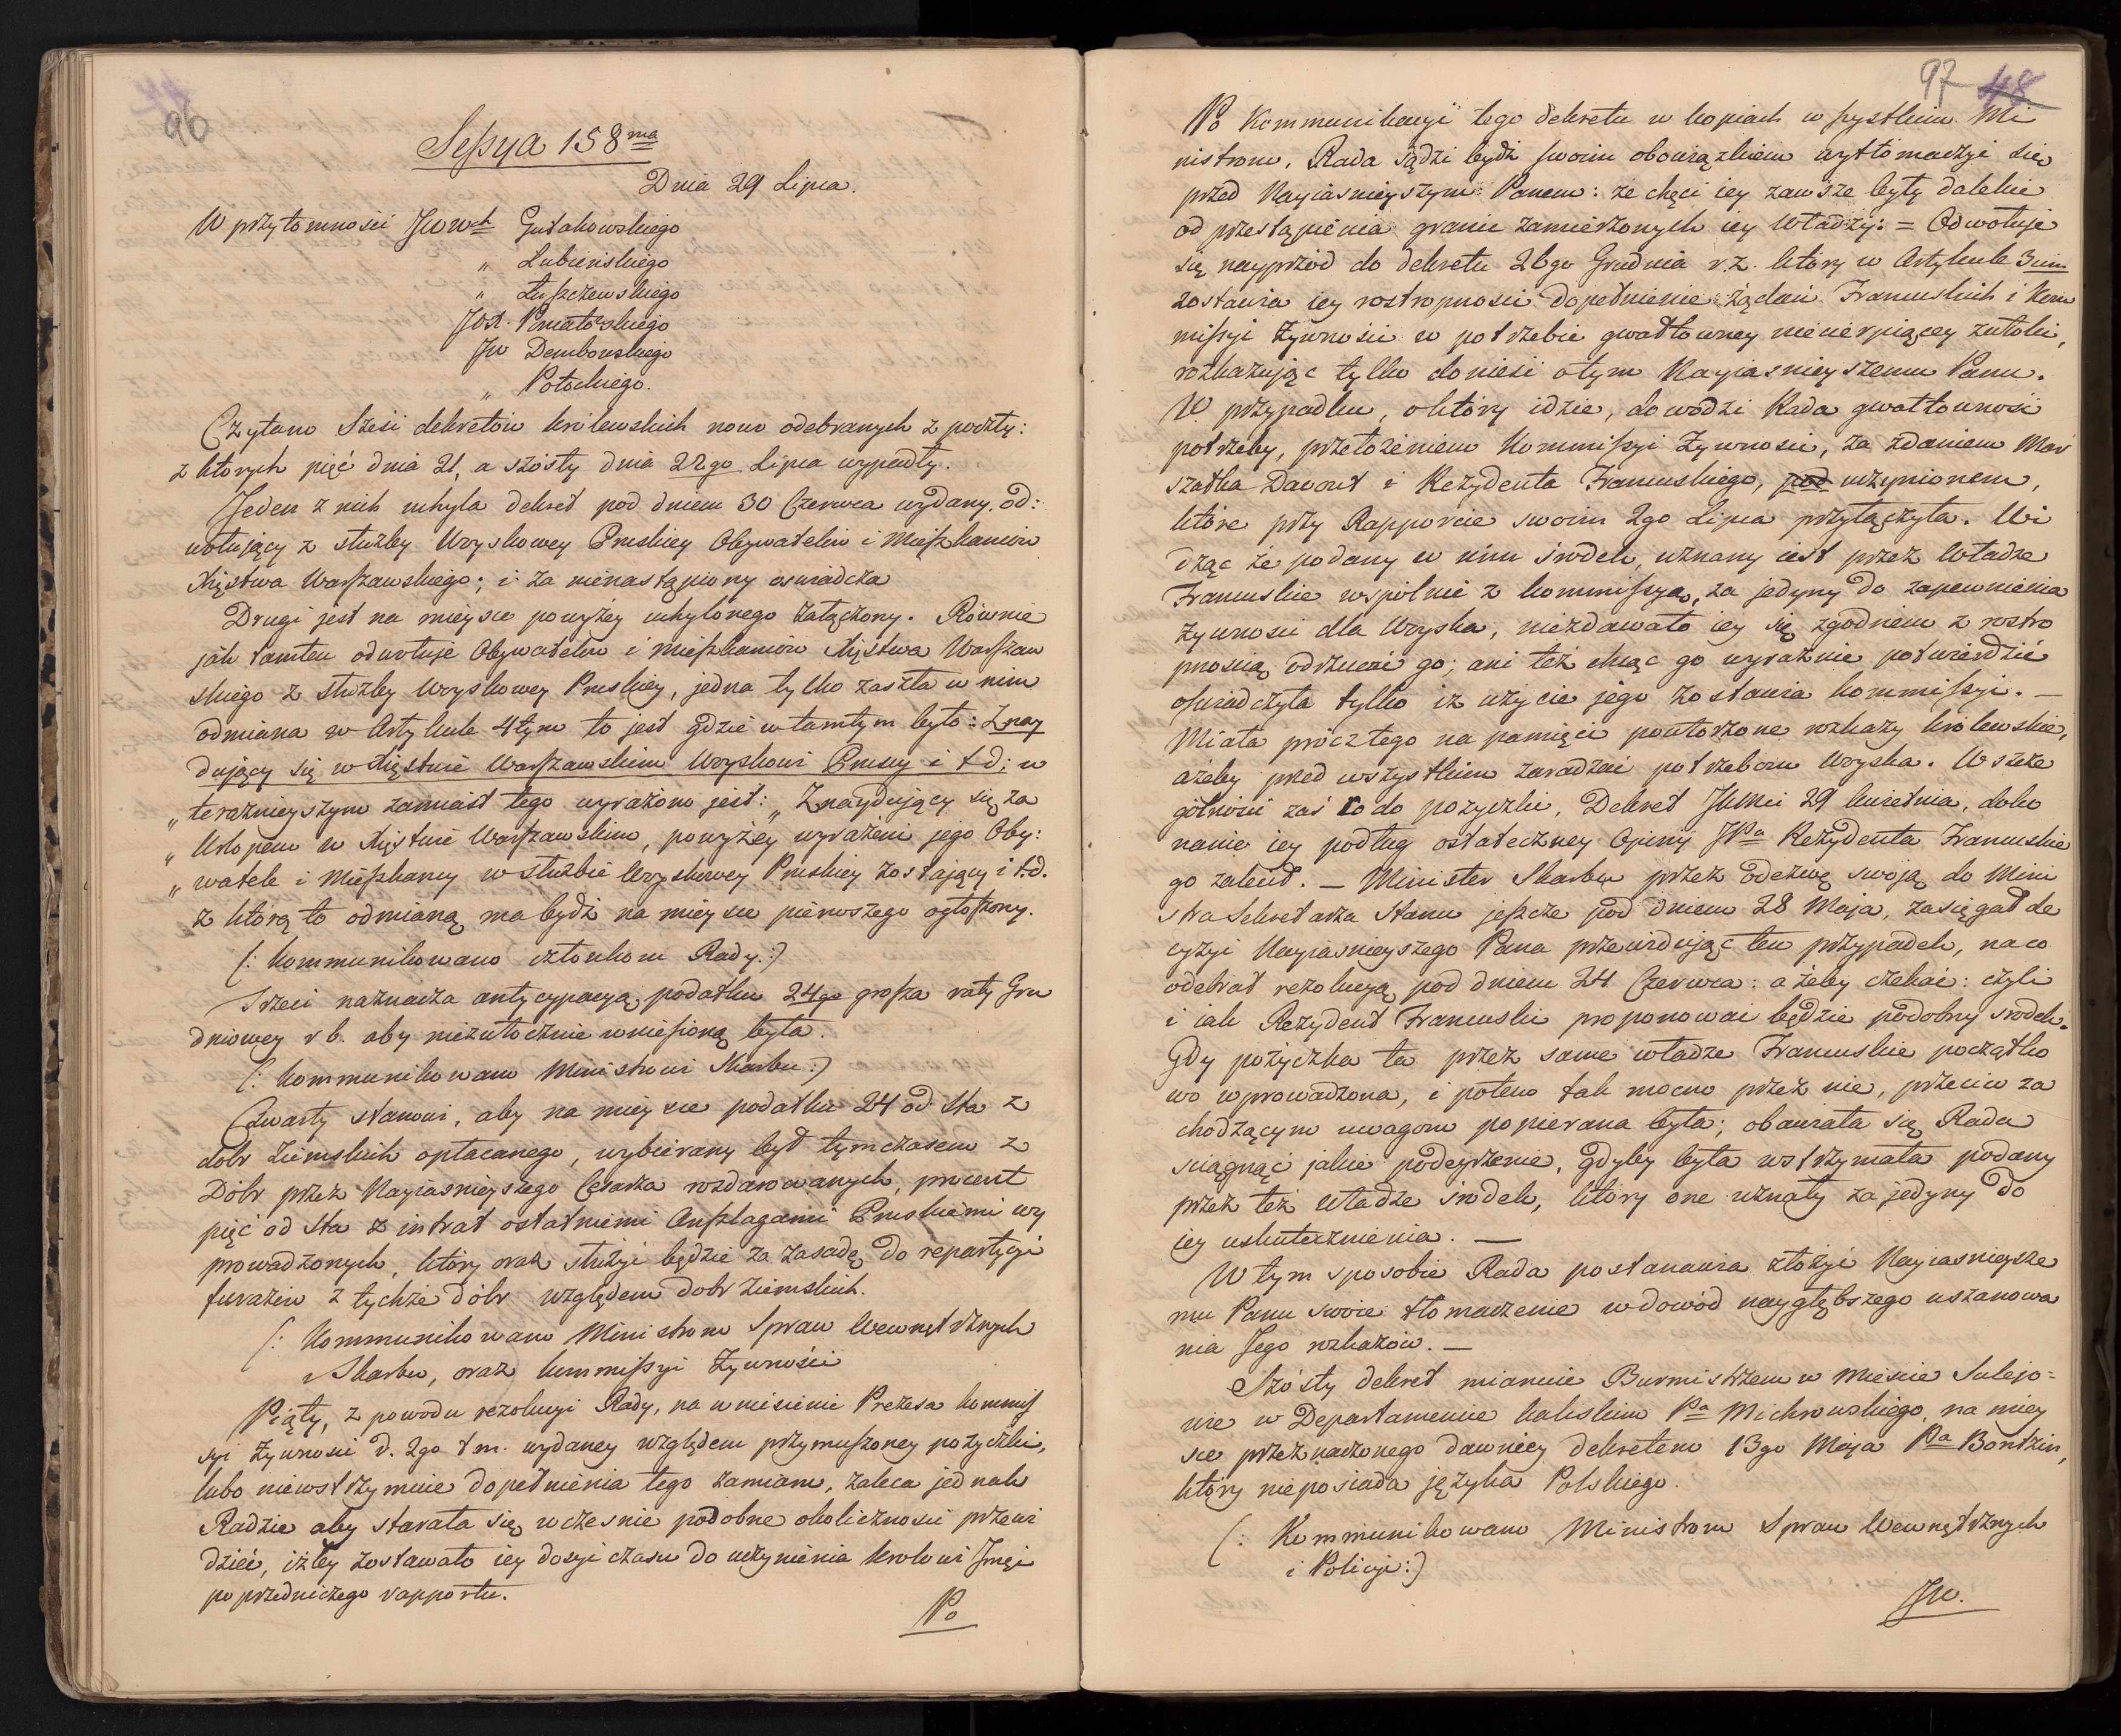 96
Seßya 158ma
Dnia 29 Lipca.
W przytomności JWWch Gutakowskiego
„ Łubieńskiego
„ Łußczewskiego
JOX. Poniatowskiego
JW Dembowskiego
„ Potockiego.
Czytano Sześć dekretów królewskich nowo odebranych z poczty:
z których pięć dnia 21, a szósty dnia 22go Lipca wypadły.
Jeden z nich uchyla dekret pod dniem 30 Czerwca wydany, od:
wołujący z służby Woyskowey Pruskiey Obywatelów i Mießkańców
Xięstwa Warßawskiego; i za nienastąpiony oświadcza
Drugi jest na mieysce powyżey uchylonego załączony. Równie
jak tamten odwołuje Obywatelów i Mießkańców Xięstwa Warßaw
skiego z służby Woyskowey Pruskiey, jedna tylko zaszła w nim
odmiana w Artykule 4tym to jest gdzie w tamtym było: Znay
dujący się w Xięstwie Warßawskim Woyskowi Pruscy i t d; w
„ teraznieyszym zamiast tego wyrażono jest: „ Znaydujący się za
„ Urlopem w Xięstwie Warßawskim, powyżey wyrażeni jego Oby:
„ watele i Mießkańcy w służbie Woyskowey Pruskiey zostający i t.d.
z którą to odmianą ma bydź na mieysce pierwszego ogłoßony.
(: Kommunikowano członkom Rady.:)
Trzeci naznacza antycypacyą podatku 24go großa raty Gru
dniowey r b. aby niezwłocznie wnießioną była.
(: Kommunikowano Ministrowi Skarbu:)
Czwarty stanowi, aby na mieysce podatku 24 od Sta z
dobr Ziemskich opłacanego, wybierany był tymczasem z
Dóbr przez Nayiasnieyszego Cesarza rozdarowanych, procent
pięć od Sta z intrat ostatniemi Anßlagami Pruskiemi wy
prowadzonych, który oraz służyć będzie za zasadę do repartycyi
furażów z tychże dóbr względem dobr Ziemskich.
(: Kommunikowano Ministrom Spraw Wewnętrznych
i Skarbu, oraz Kommißyi Żywności
Piąty, z powodu rezolucyi Rady, na wniesienie Prezesa Kommis
syi Żywności d. 2go t m. wydaney względem przymußoney pożyczki,
lubo niewstrzymuie dopełnienia tego zamiaru, zaleca jednak
Radzie aby starała się wcześnie podobne okoliczności przewi
dzieć, iżby zostawało iey dosyć czasu do uczynienia Królowi Jmci
poprzedniczego rapportu.
Po
97 48
Po Kommunikacyi tego dekretu w kopiach wßystkim Mi
nistrom, Rada sądzi bydź swoim obowiązkiem wytłomaczyć się
przed Nayiasnieyszym Panem: że chęci iey zawsze były dalekie
od przestąpienia granic zamierzonych iey Władzy: = Odwołuje
się nayprzód do dekretu 26go Grudnia r.z. który w Artykule 3cim
zostawia iey rostropności dopełnienie żądań Francuskich i Kom
mißyi Żywności w potrzebie gwałtowney niecierpiącey zwłoki,
rozkazując tylko donieść o tym Nayiasnieyszemu Panu.
W przypadku, o który idzie, dowodzi Rada gwałtowność
potrzeby, przełożeniem Kommißyi Żywności, za zdaniem Mar
szałka Davout i Rezydenta Francuskiego, pod uczynionem,
które przy Rapporcie swoim 2go Lipca przyłączyła. Wi
dząc że podany w nim środek, uznany iest przez Władze
Francuskie wspólnie z Kommißyą, za jedyny do zapewnienia
Żywności dla Woyska, niezdawało iey się zgodnem z rostro
pnością odrzucać go; ani też chcąc go wyraźnie potwierdzić
oświadczyła tylko iż użycie jego zostawia Kommißyi. —
Miała prócz tego na pamięci powtórzone rozkazy królewskie,
ażeby przed wszystkim zaradzać potrzebom Woyska. W szcze
gólności zaś co do pożyczki, Dekret JKMci 29 kwietnia, doko
nanie iey podług ostateczney Opinij JPa Rezydenta Francuskie
go zalecił. — Minister Skarbu przez odezwę swoją do Mini
stra Sekretarza Stanu jeßcze pod dniem 28 Maja, zasięgał de
cyzyi Nayiasnieyszego Pana przewidując ten przypadek, na co
odebrał rezolucyą pod dniem 24 Czerwca: ażeby czekać: czyli
i jak Rezydent Francuski proponować będzie podobny środek.
Gdy pożyczka ta przez same władze Francuskie początko
wo wprowadzona, i potem tak mocno przez nie, przeciw za
chodzącym uwagom popierana była; obawiała się Rada
ściągnąć jakie podeyrzenie, gdyby była wstrzymała podany
przez też Władze środek, który one uznały za jedyny do
iey uskutecznienia. —
W tym sposobie Rada postanawia złożyć Nayiasnieysze
mu Panu swoie tłomaczenie w dowód naygłębszego uszanowa
nia Jego rozkazów. —
Szósty dekret mianuie Burmistrzem w Mieście Sulejo=
wie w Departamencie Kaliskim Pa Michrowskiego, na miey
sce przeznaczonego dawniey dekretem 13go Maja Pa Bontzin,
który nieposiada języka Polskiego.
(: Kommunikowano Ministrom Spraw Wewnętrznych
i Policyi:)
JW.